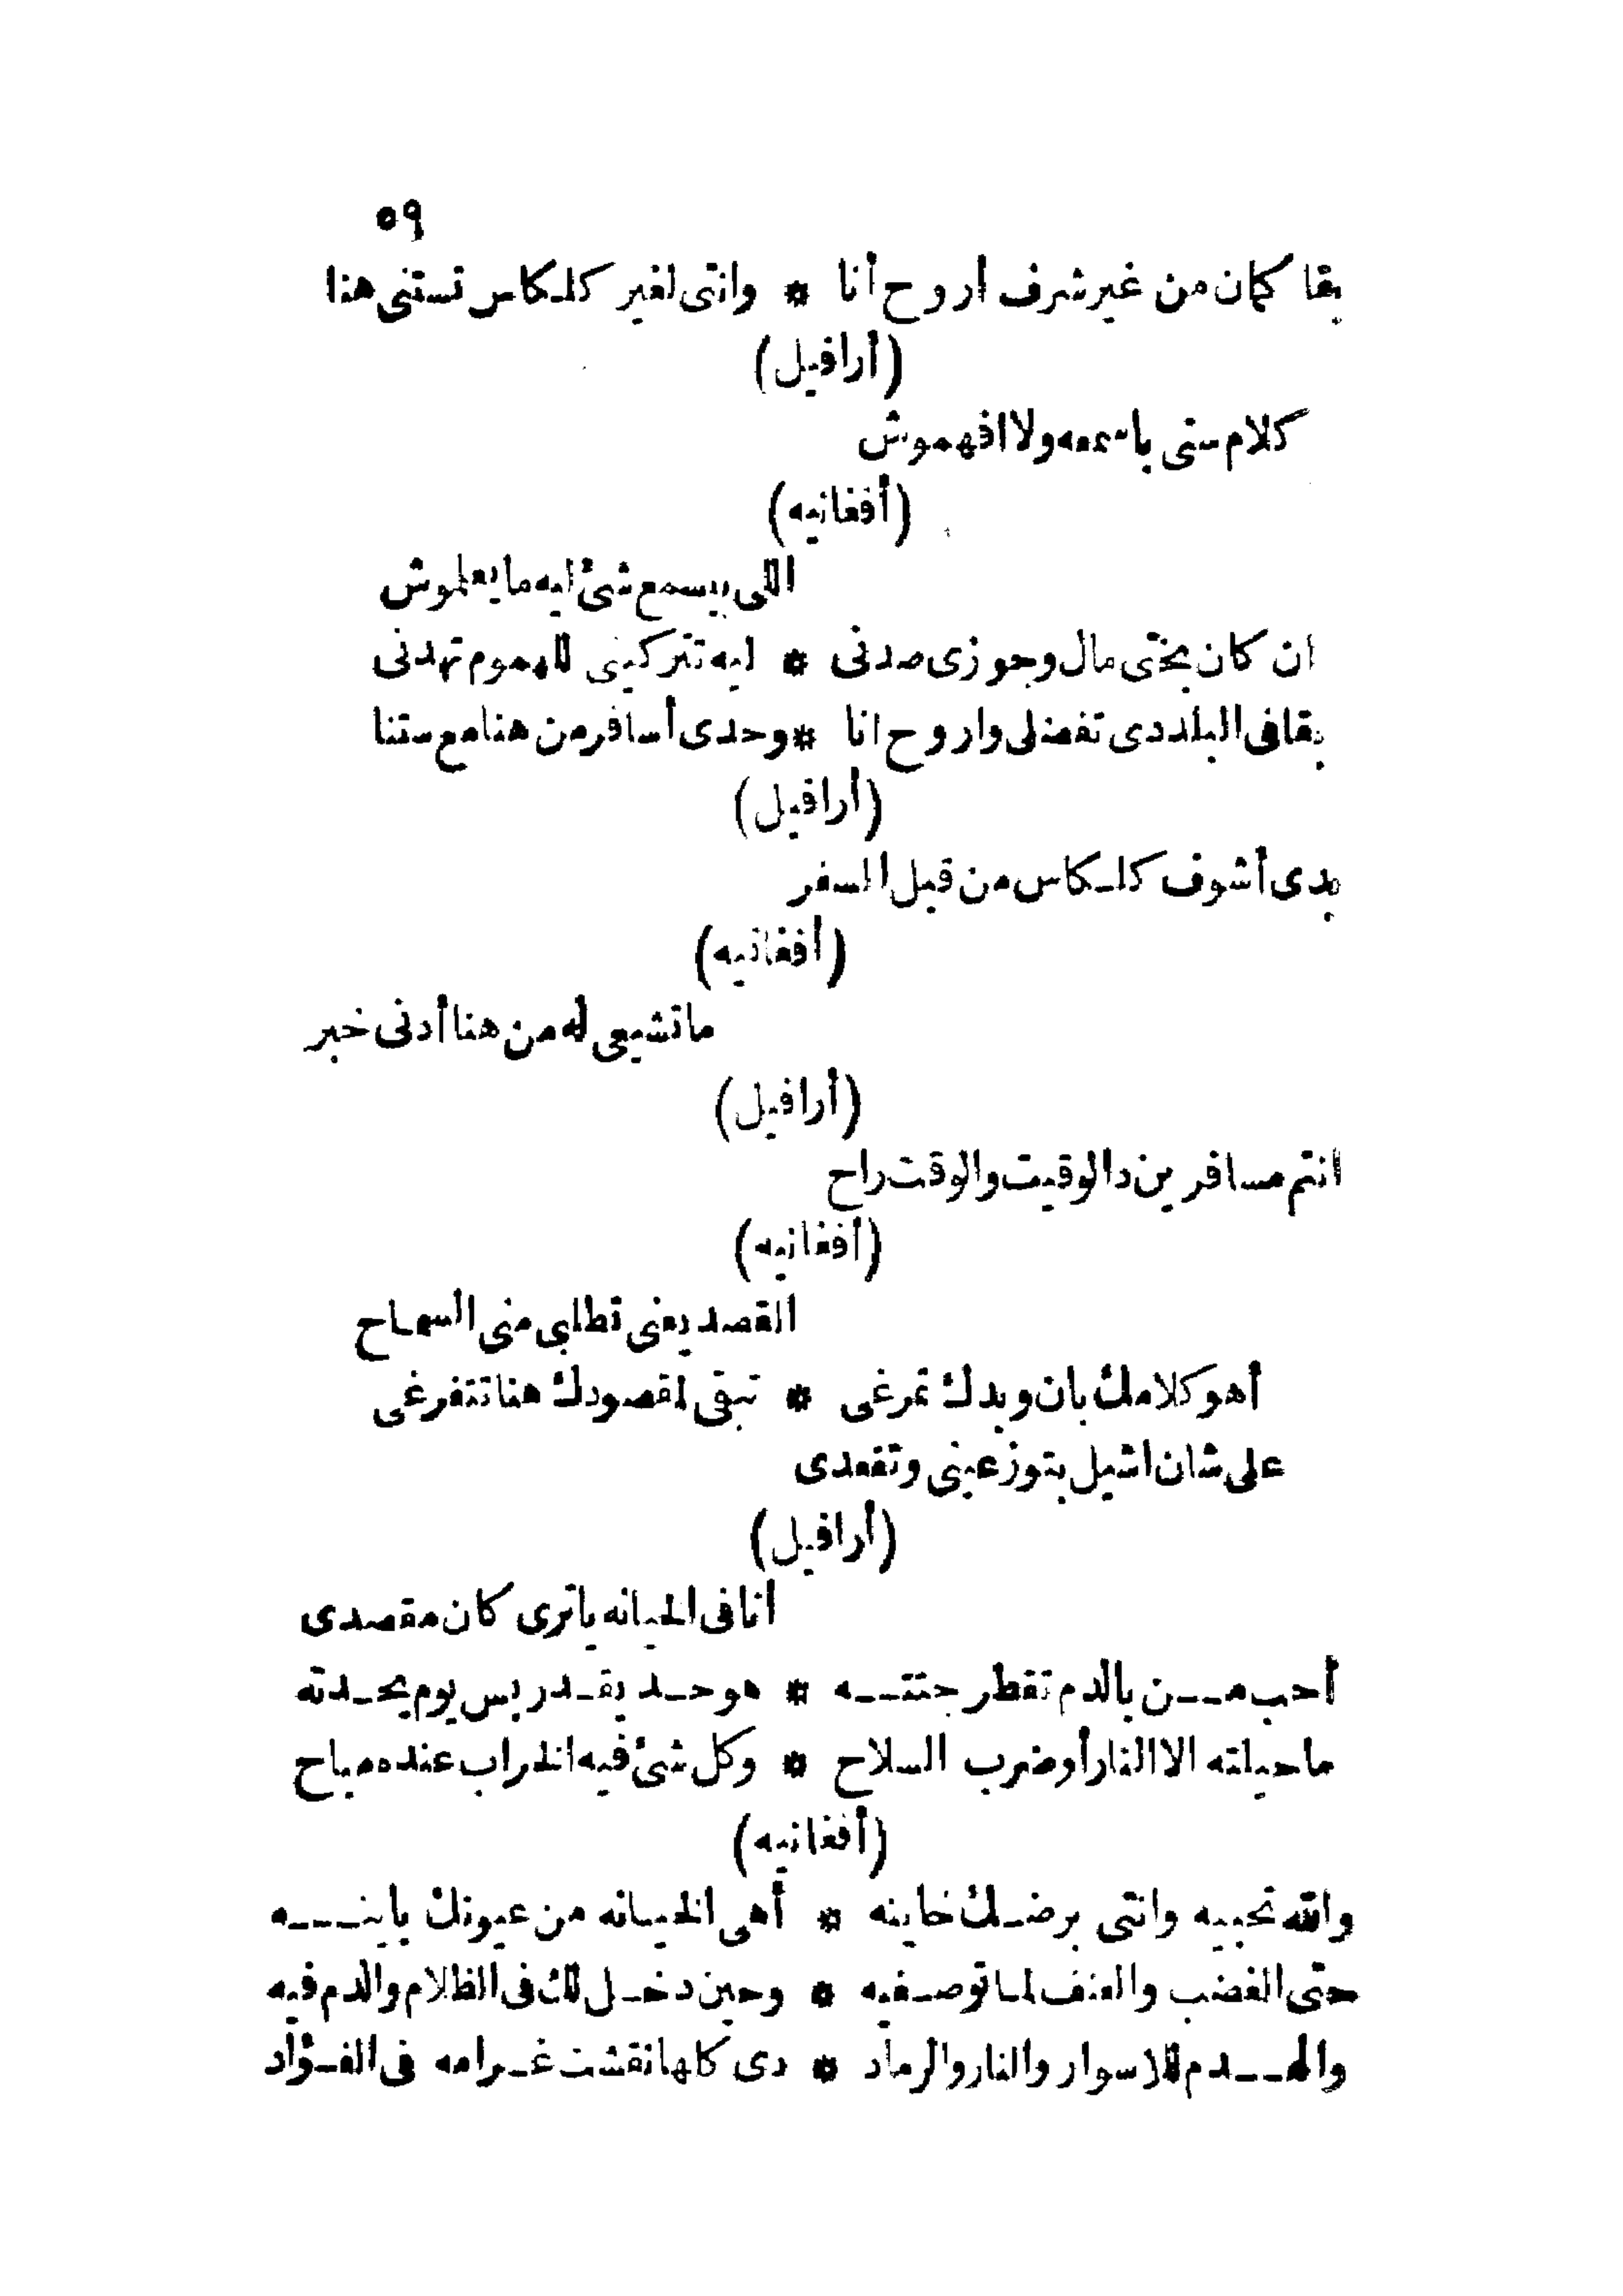 ٥٩
بقا كمان من غير شرف أروح أنا * وانتى لغير كلـكاس تستنى هنا
(أرافيل)
كلام ستى باسمعه ولا افهموش
(أفغانيه)
اللى بيسمع شئ ايه ما يعلموش
ان كان بختى مال وجوزى صدنى * ليه تتركينى للهموم تهدنى
بقا فى البلد دى تفضلى واروح انا * وحدى أسافر من هنا مع ستنا
(أرافيل)
بدى أشوف كلـكاس من قبل السفر
(أفغانيه)
ما تشيعى له من هنا أدنى خبر
(أرافيل)
انتم مسافرين دالوقيت والوقت راح
(أفغانيه)
القصد يعنى تطلبى منى السماح
أهو كلامك بان وبدك تمرغى * تبقى لمقصودك هنا تتفرغى
على شان اشيل بتوزعينى وتقعدى
(أرافيل)
انا فى الخيانه ياترى كان مقصدى
أحب مــن بالدم تقطر جتتــه * هو حـد يقـدر بس يوم يحـدته
ما حيلته الا النار أو ضرب السلاح * وكل شئ فيه الخراب عنده مباح
(أفغانيه)
والله تحبيه وانتى برضـك خاينه * أهى الخيانه من عيونك باينــه
حتى الغضب والعنف لما توصـفيه * وحين دخـل لك فى الظلام والدم فيه
والهــدم للاسوار والنار والرماد * دى كلها نقشت غـرامه فى الفـؤاد